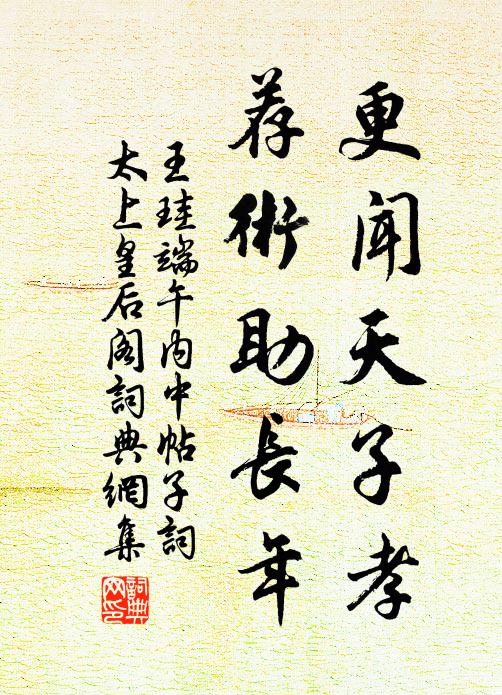 更闻天子孝
荐術助長年
王珪端午内中帖子詞
太上皇后阁詞典網集
詞典網印